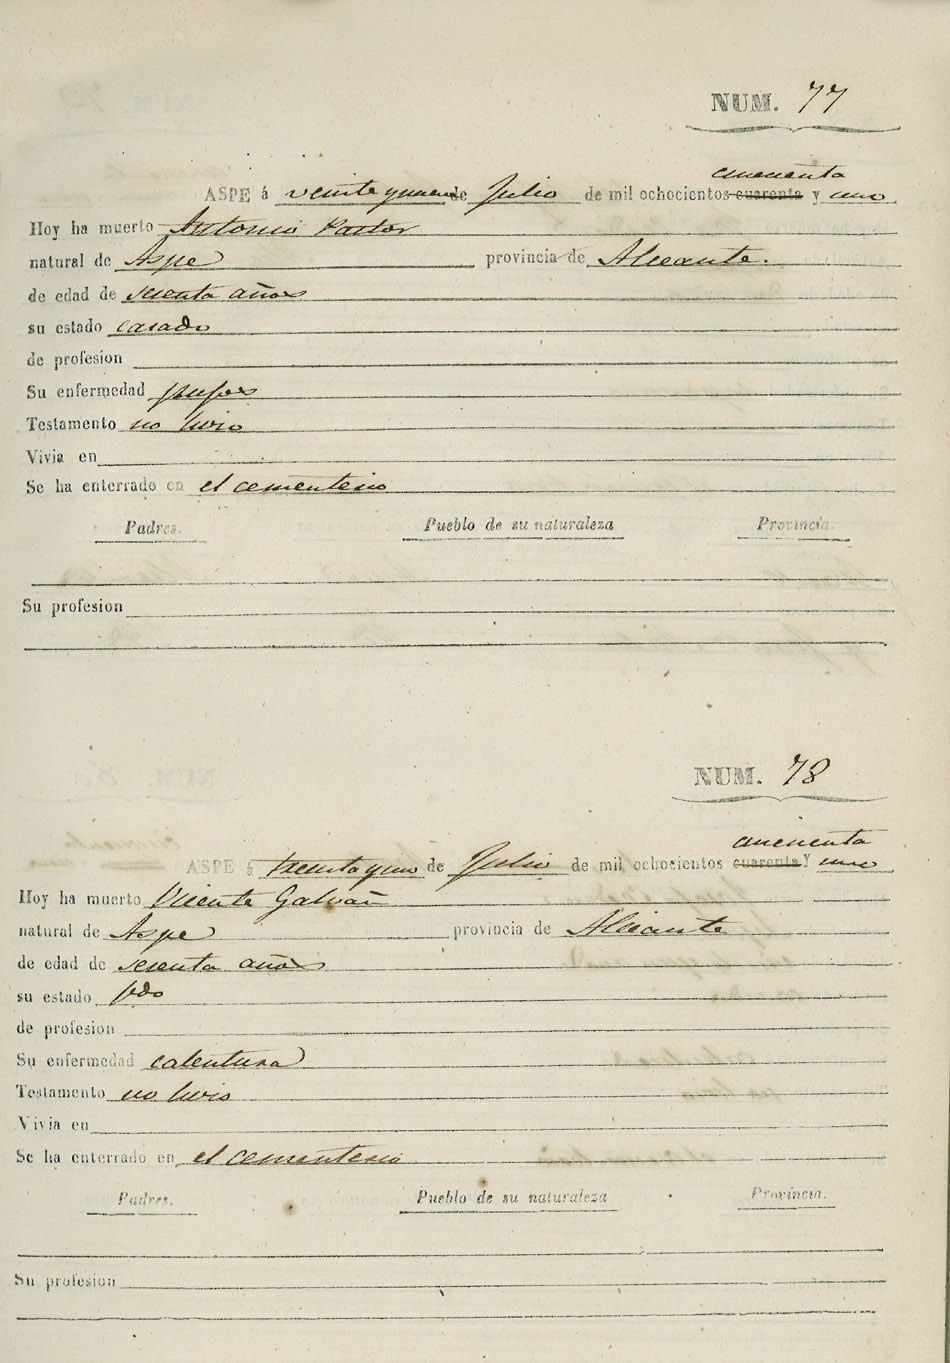 NUM. 77
cincuenta
ASPE á veinte y nueve de Julio de mil ochocientos cuarenta y uno
Hoy ha muerto Antonio Pastor
natural de Aspe provincia de Alicante.
de edad de sesenta años
su estado casado
de profesion
Su enfermedad pujos
Testamento no hizo
Vivia en
Se ha enterrado en el cementerio
Padres. Pueblo de su naturaleza Provincia.
Su profesion
NUM. 78
cincuenta
ASPE á treinta y uno de Julio de mil ochocientos cuarenta y uno
Hoy ha muerto Vicente Galvañ
natural de Aspe provincia de Alicante
de edad de sesenta años
su estado
de profesion
Su enfermedad calentura
Testamento no hizo
Vivia en
Se ha enterrado en el cementerio
Padres. Pueblo de su naturaleza Provincia.
Su profesion